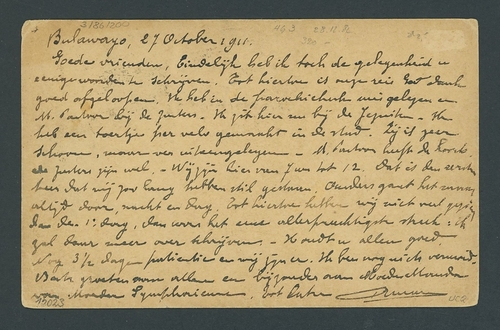 Bulawayo, 27 October 1911.
Goede vrienden, Eindelijk heb ik toch de gelegenheid u
eenige woorden te schrijven. Tot hiertoe is onze reis God dank
goed afgeloopen. Ik heb in de parochiekerk mis gelezen en
M. Pastoor bij de zusters. - Ik zit hier nu bij de Jezuïten. - Ik
heb een toertje per velo gemaakt in de stad. Zij is zeer
schoon, maar ver uiteengelegen - M. Pastoor heeft de kerk
de zusters zijn wel. - Wij zijn hier van 7 uur tot 12. Dat is den eersten
keer dat wij zoo lang hebben stil gestaan. Anders gaat het maar
altijd door, nacht en dag. Tot hiertoe hebben wij niet veel gezien
dan den 1e dag, dan was het eene allerprachtigste streek. Ik
zal daar meer over schrijven. - Houdt u allen goed.
Nog 3 1/2 dagen patientie en wij zijn er. Ik ben nog niet vermoeid
Beste groeten aan allen en bijzonder aan Moeder
Moeder Symphorienne. Tot later